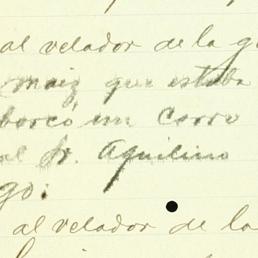 al velador de la g
maiz que estaba
borcó un carro
al Sr. Aquilino
go.
al velador de la